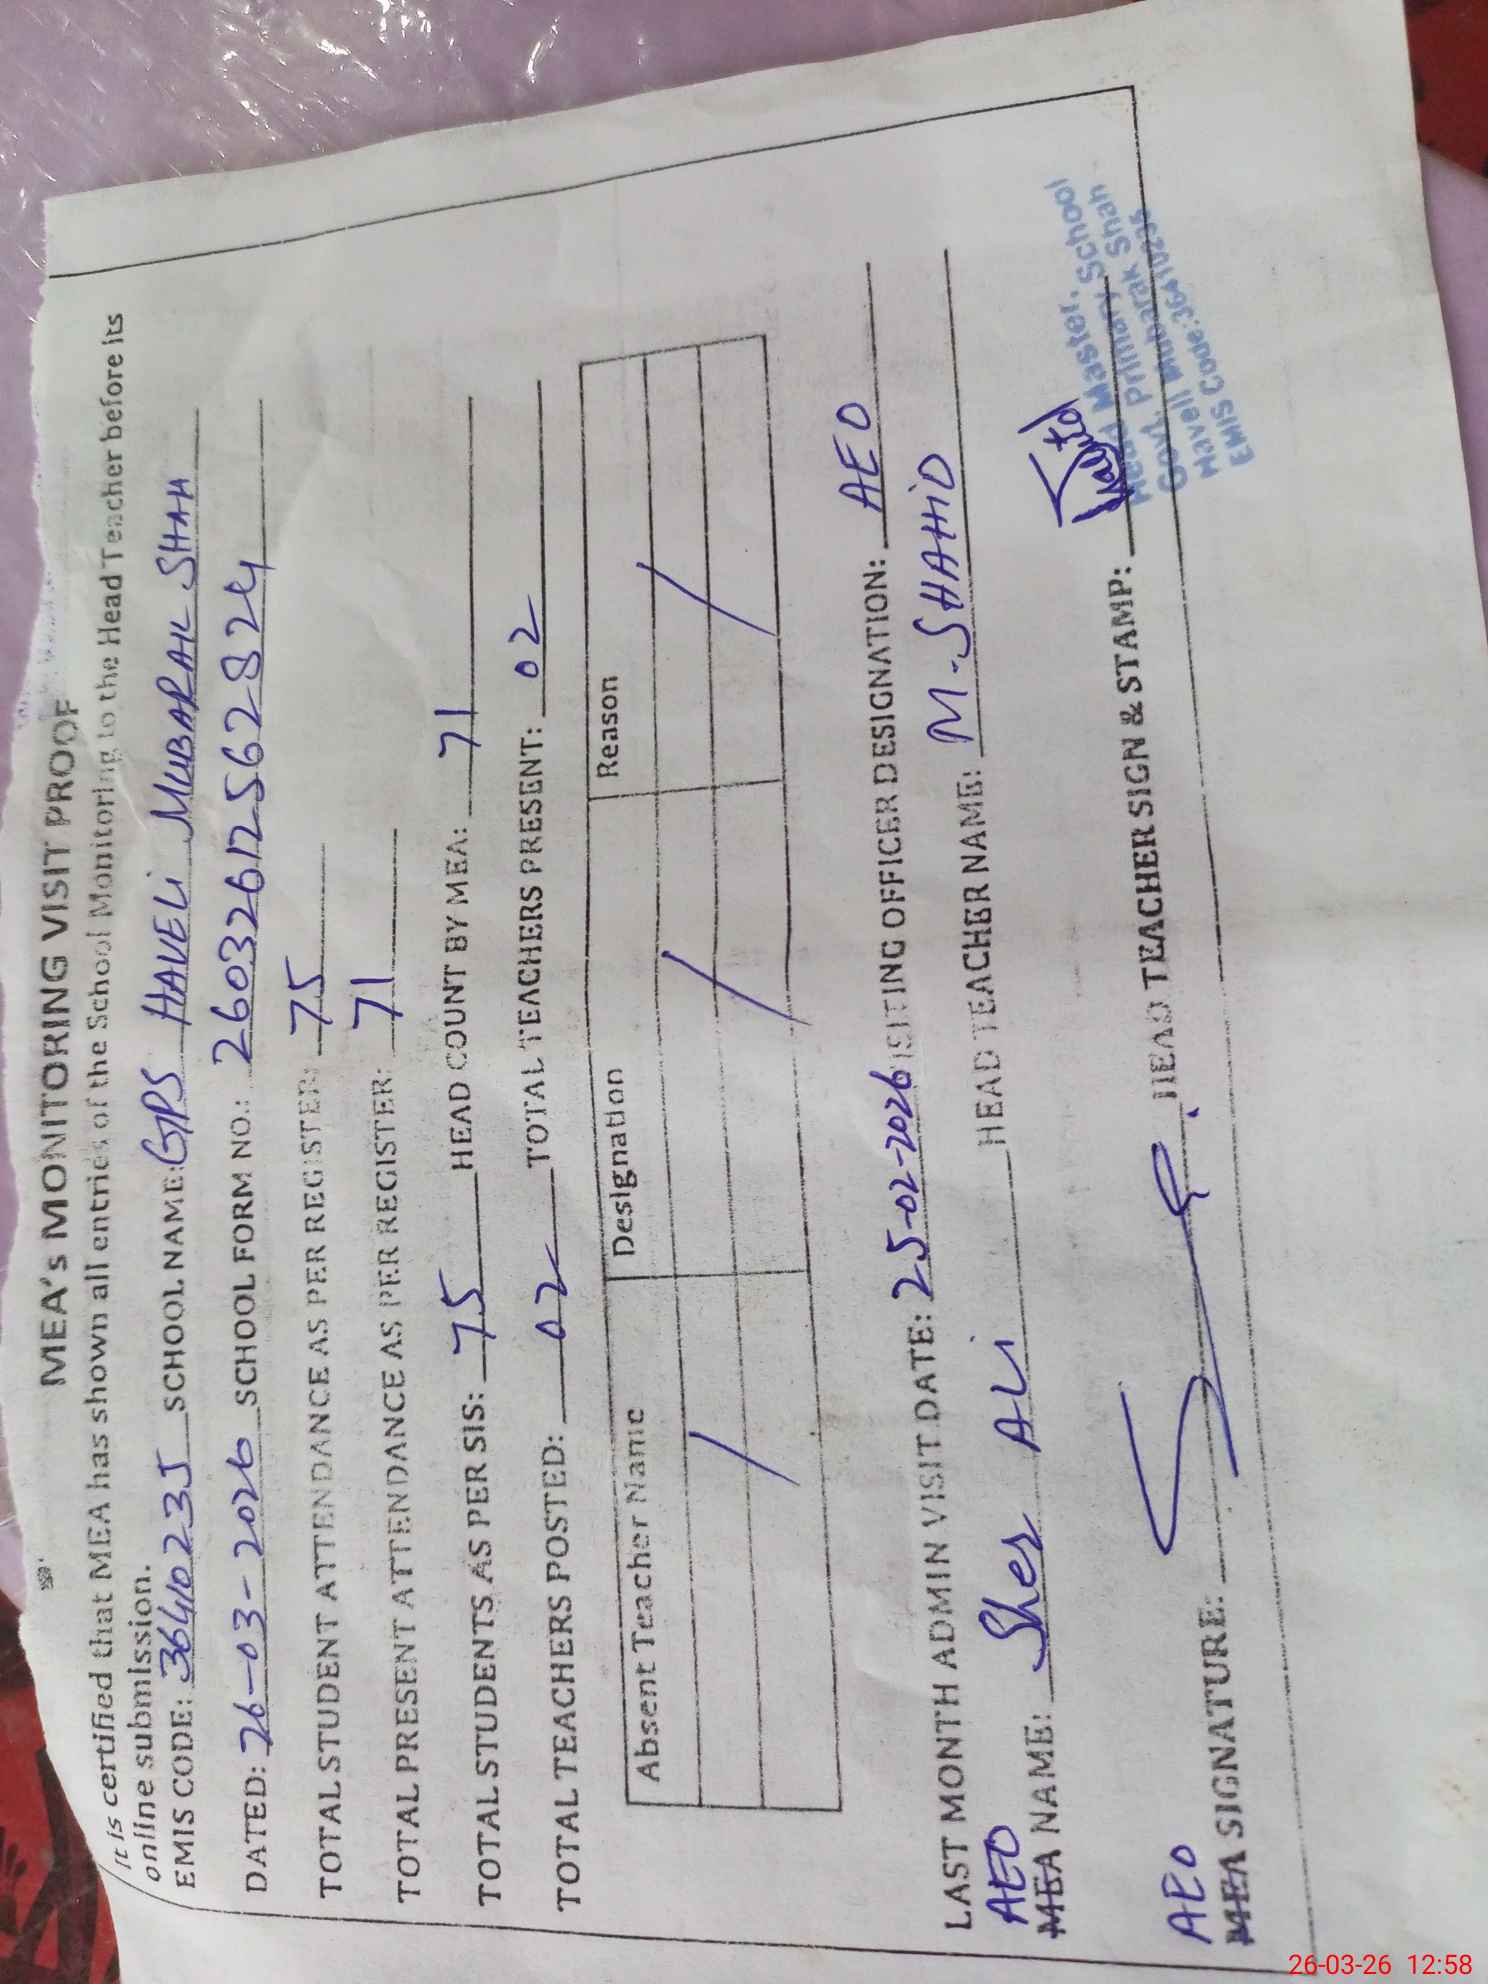 MEA's MONITORING VISIT PROOF
It is certified that MEA has shown all entries of the School Monitoring to the Head Teacher before its
online submission.
EMIS CODE: 36410235 SCHOOL NAME: GPS HAVELI MUBARAK SHAH
DATED: 26-03-2026 SCHOOL FORM NO.: 26032612562824
TOTAL STUDENT ATTENDANCE AS PER REGISTER: 75
TOTAL PRESENT ATTENDANCE AS PER REGISTER: 71
TOTAL STUDENTS AS PER SIS: 75 HEAD COUNT BY MEA: 71
TOTAL TEACHERS POSTED: 02 TOTAL TEACHERS PRESENT: 02
Absent Teacher Name Designation Reason
/ / /
LAST MONTH ADMIN VISIT DATE: 25-02-2026 VISITING OFFICER DESIGNATION: AEO
AEO
MEA NAME: Sher ALi HEAD TEACHER NAME: M-SHAHiD
AEO
MEA SIGNATURE: HEAD TEACHER SIGN & STAMP:
Head Master.
Govt. Primary School
Haveli Mubarak Shah
EMIS Code:36410235
26-03-26 12:58